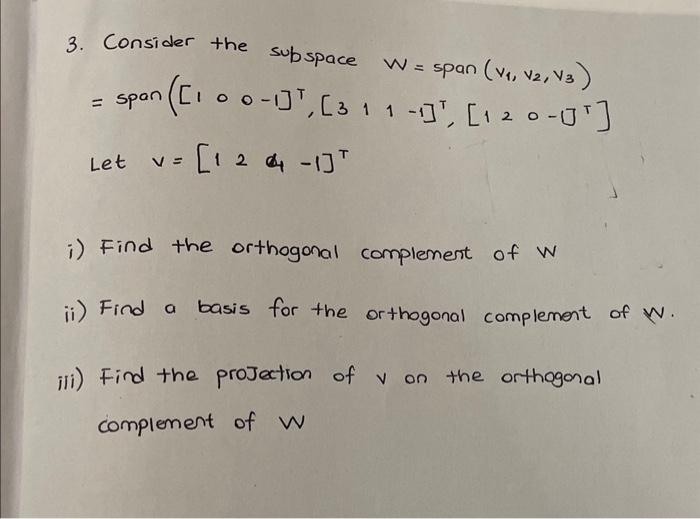 3. Consider the subspace W = span (v1, v2, v3)
= span ([1 0 0 -1]ᵀ, [3 1 1 -1]ᵀ, [1 2 0 -1]ᵀ]
Let v = [1 2 4 -1]ᵀ
i) Find the orthogonal complement of W
ii) Find a basis for the orthogonal complement of W.
iii) Find the projection of v on the orthogonal
complement of W